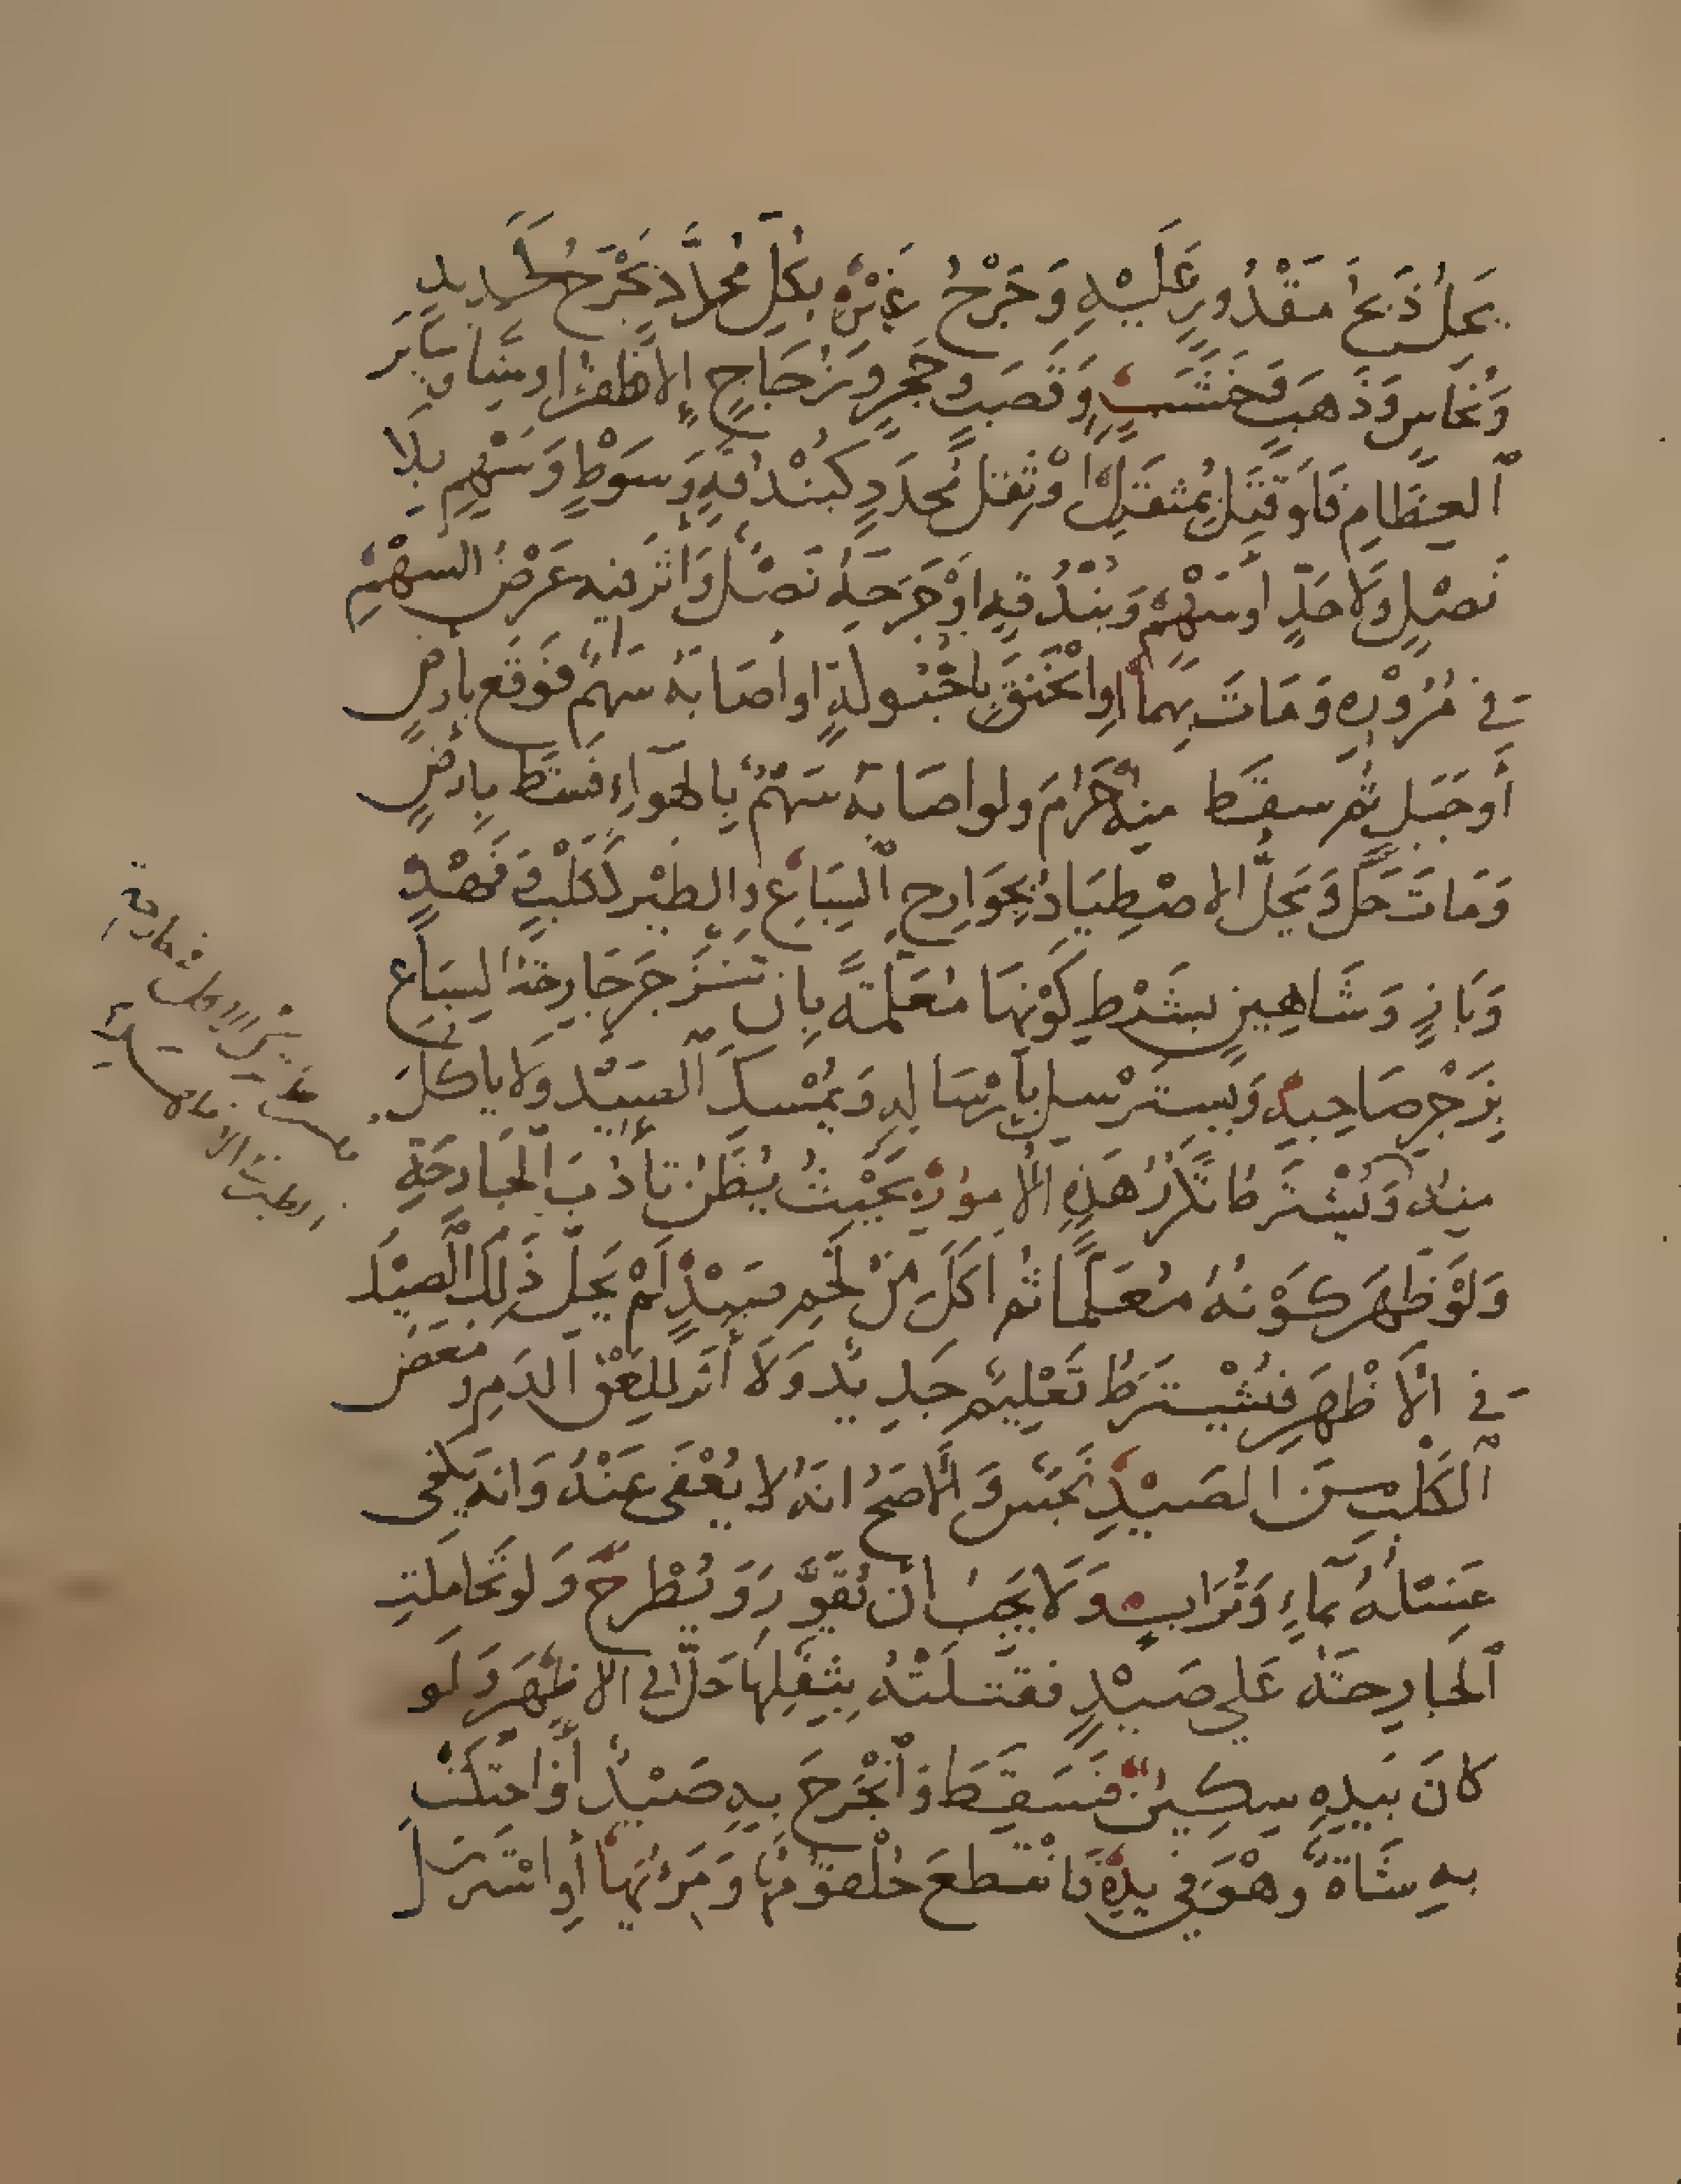 يحل ذبح مقدور عليه وجرح غيره بكل محدد يجرح كحديد
ونحاس وذهب وخشب وقصب وحجر وزجاج إلا ظفرا وسنا وساير
العظام فلو قتل بمثقل أو ثقل محدد كبندقة وسوط وسهم بلا
نصل ولا حد او سهم وبندقة او جرحه نصل وأثر فيه عرض السهم
في مروره ومات بهما او انخنق باحبولة او أصابه سهم فوقع بأرض
أو جبل ثم سقط منه حرم ولو اصابه سهم بالهواء فسقط بارض
ومات حل ويحل الاصطياد بجوارح السباع والطير ككلب وفهد
وباز وشاهين بشرط كونها معلمة بان تنزجر جارحة السباع
بزجر صاحبه ويسترسل بإرساله ويمسك الصيد ولا ياكل
منه ويشترط تكرر هذه الامور بحيث يظن تأدب الجارحة
ولو ظهر كونه معلما ثم اكل من لحم صيد لم يحل ذلك الصيد
في الاظهر فيشترط تعليم جديد ولا أثر للعق الدم ومعض
الكلب من الصيد نجس والاصح انه لا يعفى عنه وانه يكفي
غسله بماء وتراب ولا يجب ان يقور ويطرح ولو تحاملت
الجارحة علي صيد فقتلته بثقلها حل في الاظهر ولو
كان بيده سكين فسقط وانجرح به صيد أو احتكت
به شاة وهو في يده فانقطع حلقومها ومريها أو استرسل